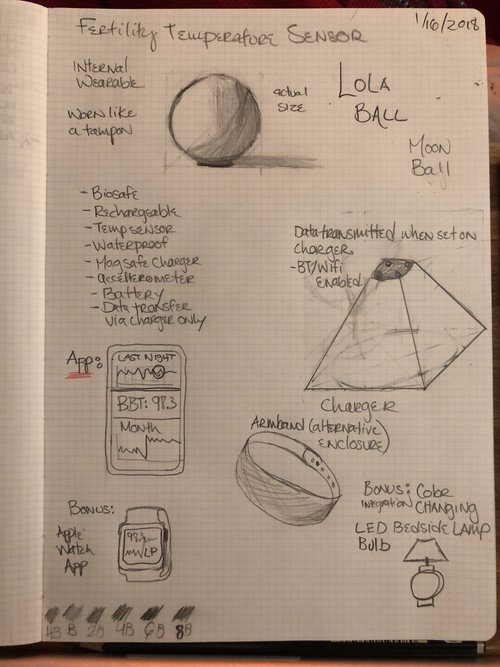 1/16/2018
Fertility Temperature Sensor
Internal
Wearable
Worn like
a tampon
actual
size
Lola
Ball
Moon
Ball
- Biosafe
- Rechargeable
- Temp sensor
- Waterproof
- Magsafe Charger
- accelerometer
- Battery
- Data transfer
via charger only
Data transmitted when set on
Charger
- BT/Wifi
enabled
Charger
App:
LAST NIGHT
BBT: 97.3
Month
Armband (alternative
enclosure)
Bonus:
Apple
Watch
App
LP
Bonus: Color
Integration Changing
LED Bedside Lamp
Bulb
4B B 2B 4B 6B 8B